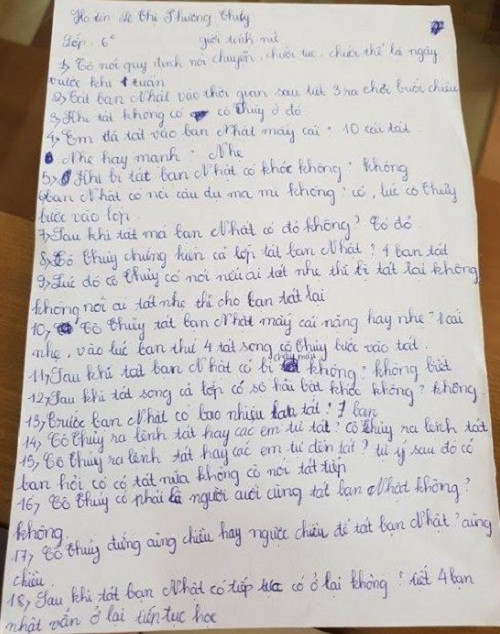 Họ tên Lê Thị Phương Thủy
Lớp 6² giới tính nữ
1, Cô nói quy định nói chuyện, chửi tục, chửi thề là ngày
trước khi 1 tuần
2, Tát bạn Nhật vào thời gian sau tiết 3 ra chơi buổi chiều
3, Khi tát không có cô Thủy ở đó
4, Em đã tát vào bạn Nhật mấy cái? 10 cái tát
Nhẹ hay mạnh? Nhẹ
5, Khi bị tát bạn Nhật có khóc không? không
6, bạn Nhật có nói câu đu ma mi không? có, lúc cô Thủy
bước vào lớp
7, Sau khi tát má bạn Nhật có đỏ không? Có đỏ
8, Cô Thủy chứng kiến cả lớp tát bạn Nhật? 4 bạn tát
9, Lúc đó cô Thủy có nói nếu ai tát nhẹ thì bị tát lại không
không nói ai tát nhẹ thì cho bạn tát lại
10, Cô Thủy tát bạn Nhật mấy cái nặng hay nhẹ? 1 cái
nhẹ, vào lúc bạn thứ 4 tát song cô Thủy bước vào tát.
11, Sau khi tát bạn Nhật có bị chảy máu không? không biết
12, Sau khi tát song cả lớp có sợ hãi bật khóc không? không.
13, Trước bạn Nhật có bao nhiêu bạn tát? 7 bạn
14, Cô Thủy ra lệnh tát hay các em tự tát? cô Thủy ra lệnh tát
15, Cô Thủy ra lệnh tát hay các em tự đến tát? tự ý sau đó có
bạn hỏi cô có tát nữa không cô nói tát tiếp
16, Cô Thủy có phải là người cuối cùng tát bạn Nhật không?
không.
17, Cô Thủy đứng cùng chiều hay ngược chiều để tát bạn Nhật? cùng
chiều.
18, Sau khi tát bạn Nhật có tiếp tục có ở lại không? tiết 4 bạn
nhật vẫn ở lại tiếp tục học